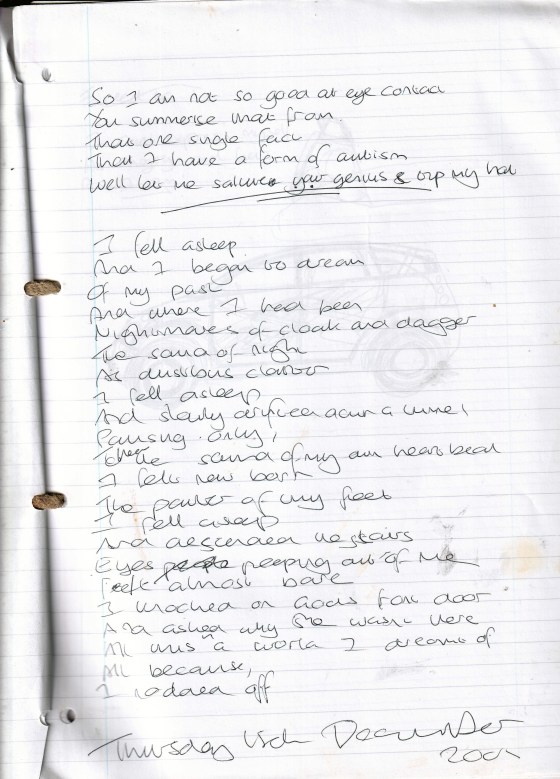 So I am not so good at eye contact
You summerise that from
That one single fact
That I have a form of autism
Well let me salute your genius & tip my hat
I fell asleep
And I began to dream
Of my past
And where I had been
Nightmares of cloak and dagger
The sound of night
As
I fell asleep
And slowly drifted down a tunnel
Pausing only,
To hear the sound of my own heart beat
I felt new born
The patter of my feet
I fell asleep
And descended the stairs
Eyes peeping out of me
Feet almost bare
I knocked on Gods front door
And asked why She wasn't here
All this a world I dreamt of
All because,
I nodded off
Thursday 15th December
2005